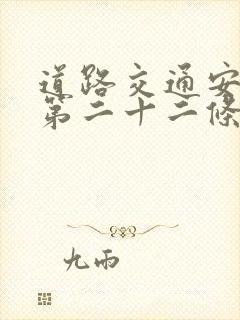 道路交通安
第二十二條
九雨